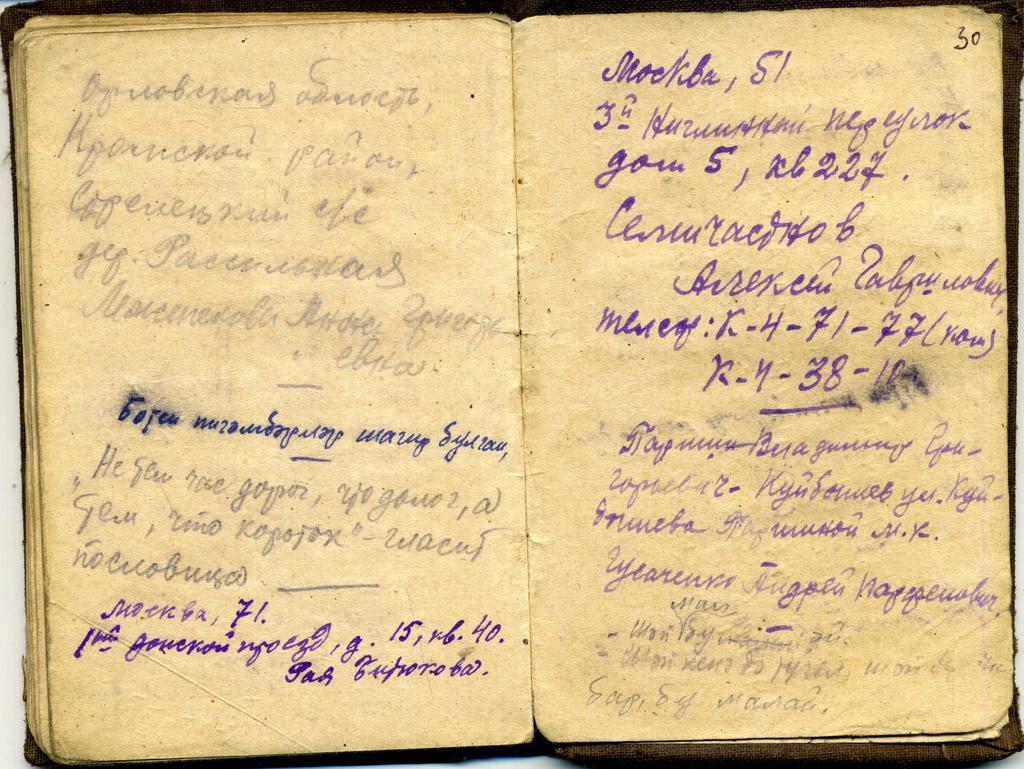 Орловская область,
Кромской район,
Стрелецкий с/с
дер. Рассыльная
Анне Григорь
евна.
Бөтен пигамбәрләр шагир булган,
"Не тем час дорог, что долог, а
тем, что короток" - гласит
пословица
Москва, 71.
1ый донской проезд, д. 15, кв. 40.
Рая Бирюкова.
30
Москва, 51
3й переулок
дом 5, кв 227.
Семичастнов
Алексей Гаврилович,
телеф: К-4-71-77 (ком)
К-4-38-10
Паршин Владимир Гри-
горьевич - Куйбышев ул. Куй-
бышева Паршиной М. К.
Гусаченко Андрей Парфенович.
мал
бар, бу малай.